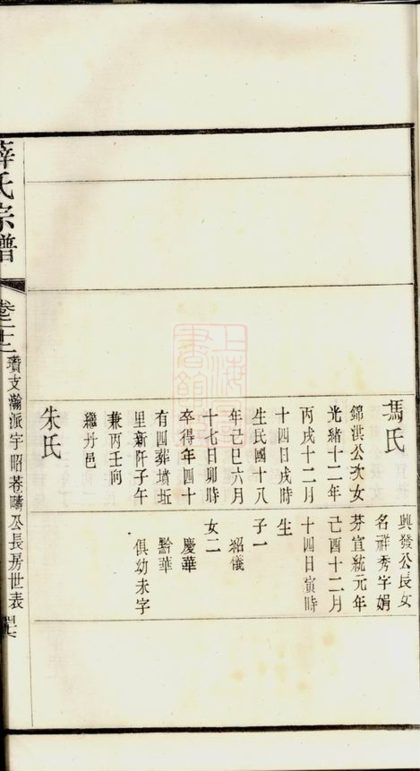 馮氏
錦洪公次女
光緒十二年
丙戌十二月
十四日戌時
生民國十八
年己巳六月
十七日卯時
卒得年四十
有四葬墳近
里新阡子午
兼丙壬向
繼丹邑
朱氏
興發公長女
名祥秀字娟
芬宣統元年
己酉十二月
十四日寅時
生
子一
紹儀
女二
慶華
黔華
俱幼未字
氏宗譜
瓚支瀚派宇昭菴疇公長房世表